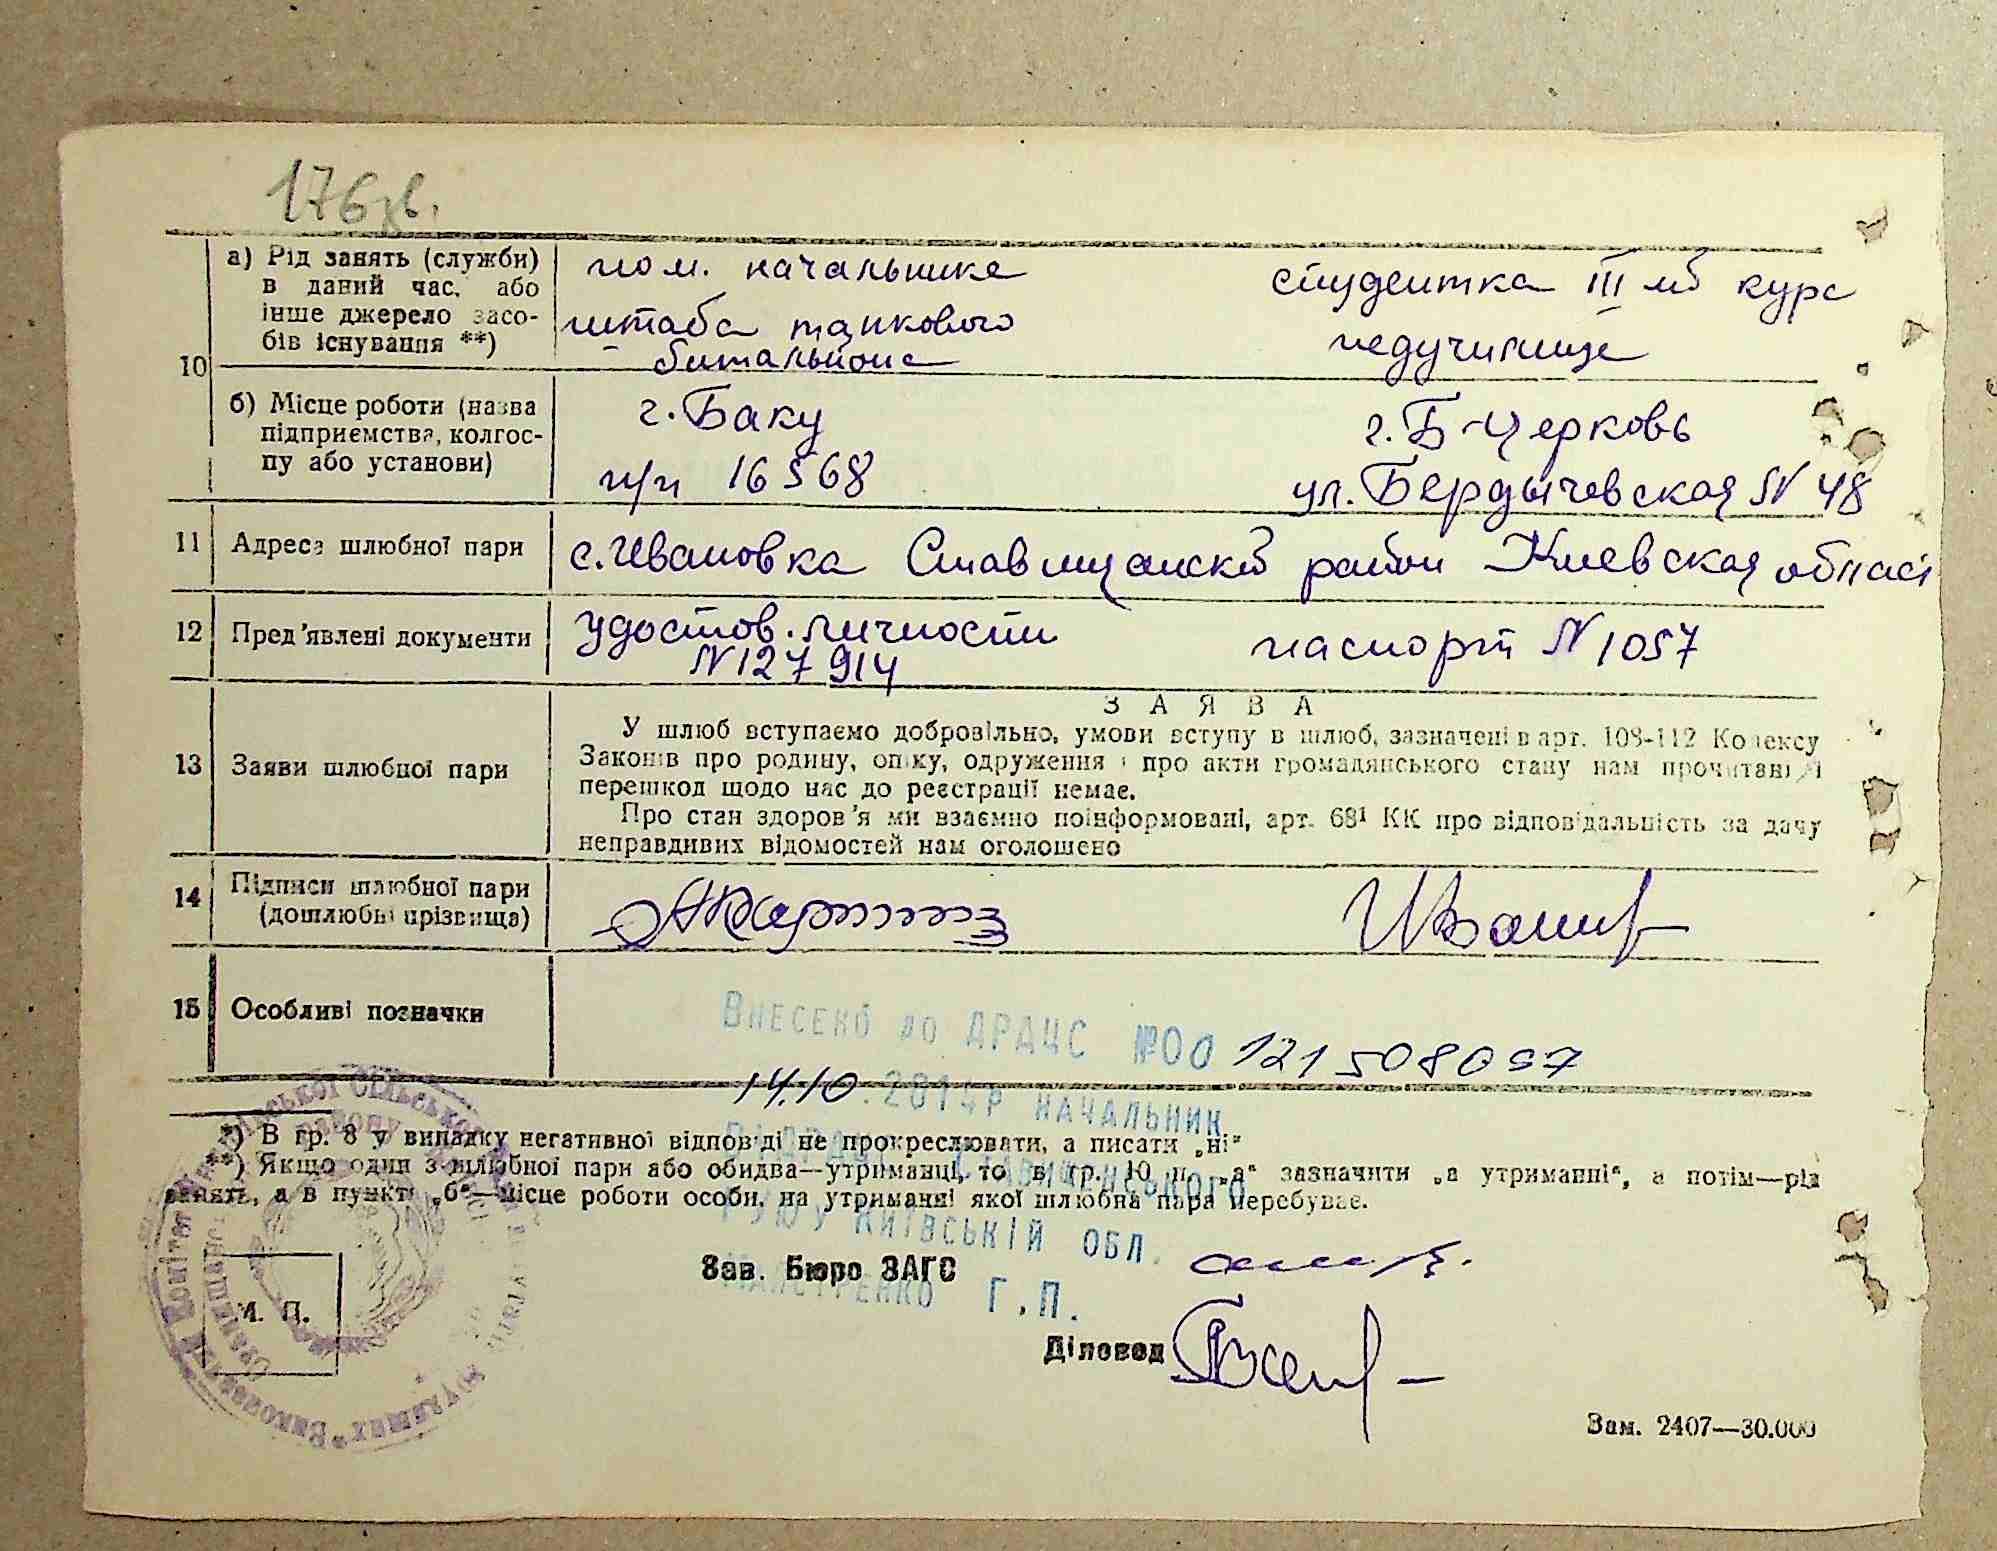 176 зв.
10
а) Рід занять (служби)
в даний час, або
інше джерело засо-
бів існування **)
пом. начальника
штаба танкового
батальйона
студентка III го курс
педучилище
б) Місце роботи (назва
підприємства, колгос-
пу або установи)
г. Баку
п/п 16568
г. Б-Церковь
ул. Бердычевская N 48
11 Адреса шлюбної пари
с. Ивановка Ставищанский район Киевская област
12 Пред'явлені документи
удостов. личности
N 127914
паспорт N 1057
13 Заяви шлюбної пари
ЗАЯВА
У шлюб вступаємо добровільно, умови вступу в шлюб, зазначені в арт. 108-112 Кодексу
Законів про родину, опіку, одруження і про акти громадянського стану нам прочитані і
перешкод щодо нас до реєстрації немає.
Про стан здоров'я ми взаємно поінформовані, арт. 68¹ КК про відповідальність за дачу
неправдивих відомостей нам оголошено
14 Підписи шлюбної пари
(дошлюбні прізвища)
15 Особливі позначки
Внесено до ДРАЦС №00 121508057
14.10.2014р начальник
Ставищанського
РУЮ у Київській обл.
Г.П.
*) В гр. 8 у випадку негативної відповіді не прокреслювати, а писати „ні"
**) Якщо один з шлюбної пари або обидва—утриманці, то в гр. 10 п. „а" зазначити „а утриманні", а потім—рід
занять, а в пункті „б"—місце роботи особи, на утриманні якої шлюбна пара перебуває.
М. П.
Зав. Бюро ЗАГС
Діловод
Зам. 2407—30.000